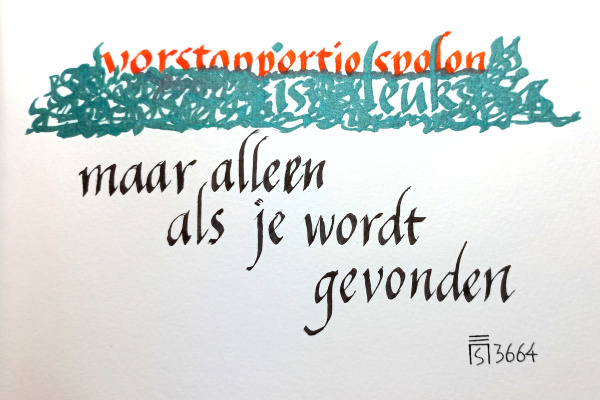 verstoppertje spelen
is leuk
maar alleen
als je wordt
gevonden
S 3664